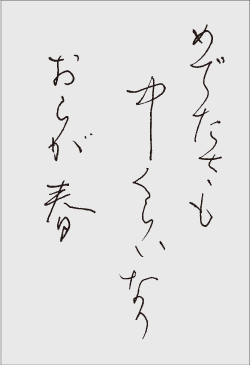 めでたさも
中くらいなり
おらが春